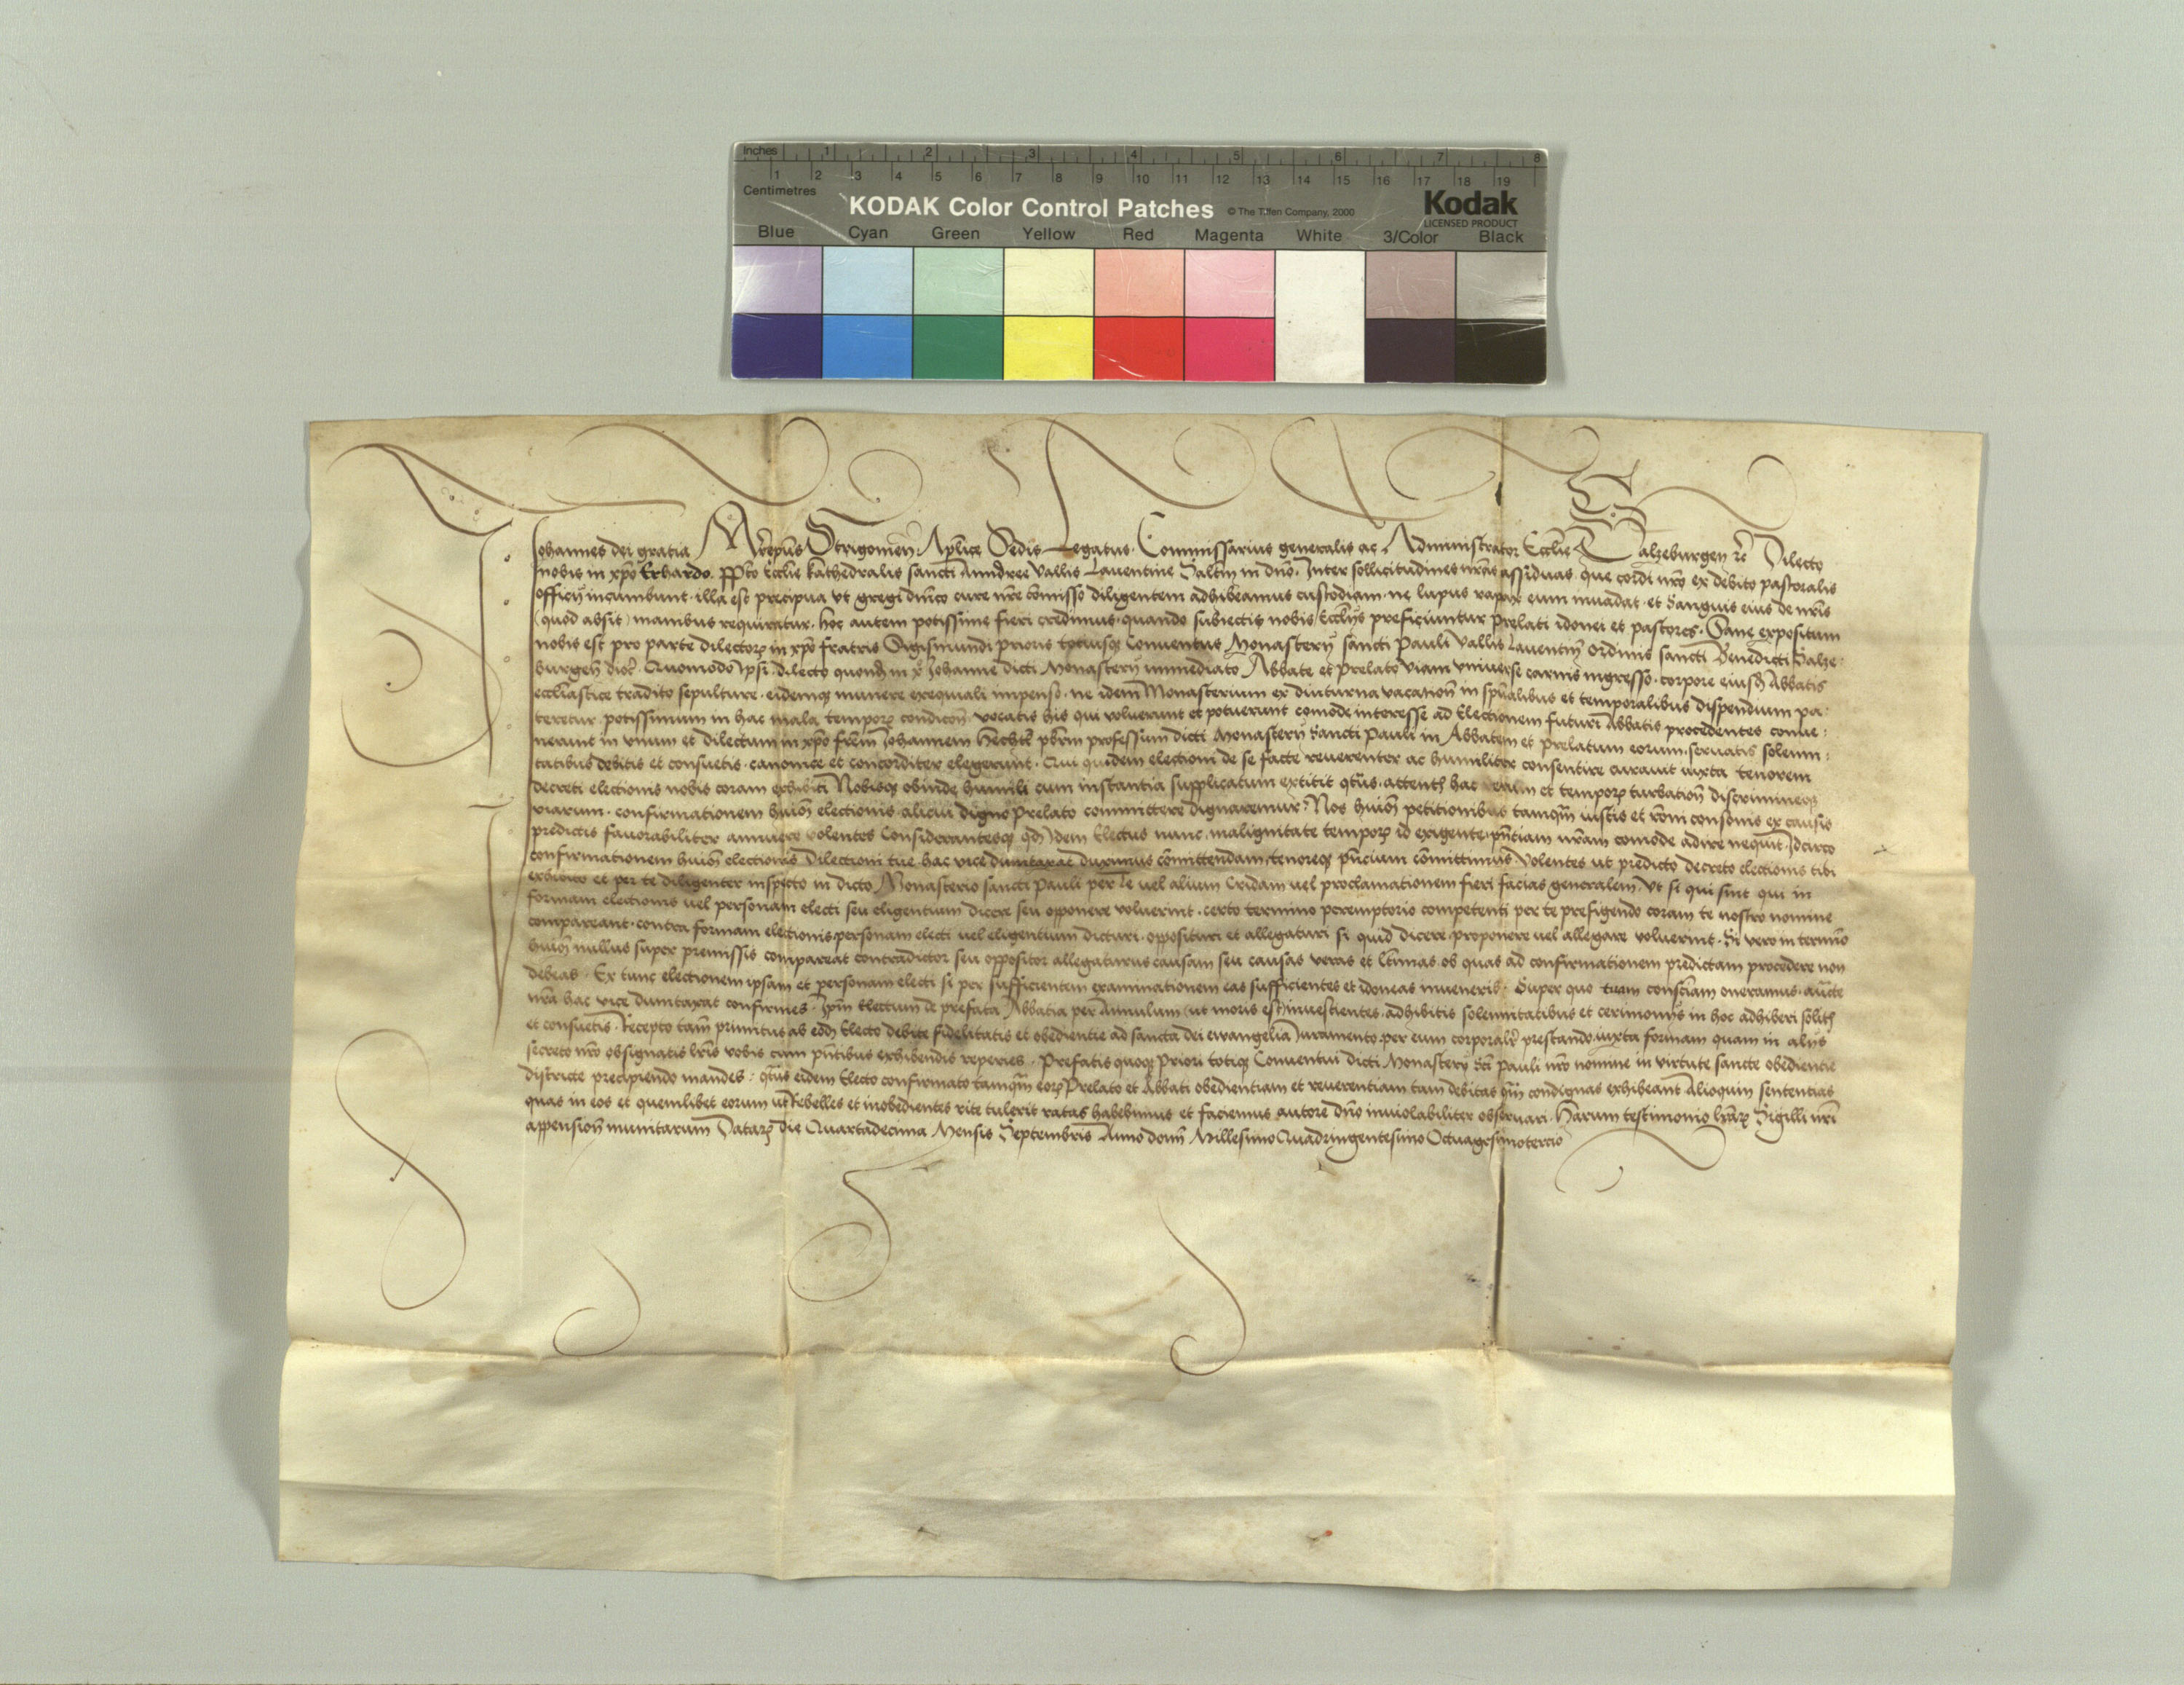 Inches 1 2 3 4 5 6 7 8
1 2 3 4 5 6 7 8 9 10 11 12 13 14 15 16 17 18 19
Centimetres
KODAK Color Control Patches © The Tiffen Company, 2000 Kodak
LICENSED PRODUCT
Blue Cyan Green Yellow Red Magenta White 3/Color Black
Johannes dei gratia Archiep̄us Strigonien̄. Ap̄lice Sedis Legatus. Commissarius generalis ac Administrator Ecclie Salzeburgen̄ ꝛc̄ Dilecto
nobis in xp̄o Erhardo. Pp̄to Ecclīe kathedralis sancti Anndree Vallis Lauentine Salt̄m in dn̄o. Inter sollicitudines nr̄as assiduas. que cordi nr̄o ex debito pastoralis
officij incumbunt. illa est precipua vt gregi dn̄ico cure nr̄e cōmisso diligentem adhibeamus custodiam. ne lupus rapax eum inuadat. et Sanguis eius de nr̄is
(quod absit) manibus requiratur. hoc autem potissime fieri credimus. quando subiectis nobis Eccl̄ijs preficiuntur Prelati idonei et pastores. Sane expositum
nobis est pro parte dilectorꝝ in xp̄o fratris Sigismundi prioris totiusqꝫ Conuentus Monasterij sancti Pauli Vallis Lauentin̄ Ordinis sancti Benedicti Salze:
burgen̄ dioc̄. Quomodo ipsi. dilecto quondā in x̄ Johanne dicti Monasterij immediato Abbate et Prelato viam vniuerse carnis ingresso. corpore eiusd̄ Abbatis
eccl̄iastice tradito sepulture. eidemqꝫ munere exequiali impenso. ne idem Monasterium ex diuturna vacation̄ in spūalibus et temporalibus dispendium pa:
teretur. potissimum in hac mala temporꝝ condicōn̄. vocatis his qui voluerunt et potuerunt comōde interesse ad Electionem futuri Abbatis procedentes conue:
nerunt in vnum et dilectum in xp̄o frēm Johannem Hechtl pbr̄m professum dicti Monasterij Sancti Pauli in Abbatem et prelatum eorum. seruatis solenni:
tatibus debitis et consuetis. canonice et concorditer elegerunt. Qui quidem electioni de se facte reuerenter ac humiliter consentire curauit iuxta tenorem
decreti electionis nobis coram exhibiti Nobisqꝫ obinde humili cum instantia supplicatum extitit qt̄us. attent̄ hac rerum et temporꝝ turbation̄ discrimineqꝫ
viarum. confirmationem huiōi electionis. alicui digno Prelato committere dignaremur. Nos huiōi petitionibus tamqm̄ iustis et rōni consonis ex causis
predictis fauorabiliter annuere volentes Considerantesqꝫ qd̄ Idem Electus nunc. malignitate temporꝝ id exigente. pn̄tiam nr̄am comode adire nequit. Idcirco
confirmationem huiōi electionis Dilectioni tue hac vice dumtaxat duximus cōmittendam. tenoreqꝫ pn̄cium cōmittimus Volentes ut predicto decreto electionis tibi
exhibito et per te diligenter inspecto in dicto Monasterio sancti Pauli per Te uel alium Cridam uel proclamationem fieri facias generalem. Vt si qui sint qui in
formam electionis uel personam electi seu eligentium dicere seu opponere voluerint. certo termino peremptorio competenti per te prefigendo coram te nostro nomine
compareant. contra formam electionis personam electi uel eligentium dicturi. opposituri et allegaturi si quid dicere. proponere uel allegare voluerint. Si vero in termīo
huiōi nullus super premissis compareat contradictor seu oppositor allegaturus causam seu causas veras et ltīmas. ob quas ad confirmationem predictam procedere non
debeas. Ex tunc electionem ipsam et personam electi si per sufficientem examinationem eas sufficientes et idoneas inueneris. Super quo tuam consciām oneramus. auc̄te
nr̄a hac vice dumtaxat confirmes. Ipm̄ Electum de prefata Abbatia per Annulum (ut moris est) inuestientes. adhibitis solennitatibus et cerimonijs in hoc adhiberi solit̄
et consuetis. Recepto tam̄ primitus ab eod̄ Electo debite fidelitatis et obedientie ad sancta dei ewangelia Iuramento. per eum corporalr̄ prestando. iuxta formam quam in alijs
secreto nr̄o obsignatis lr̄is vobis cum pn̄tibus exhibendis reperies. Prefatis quoqꝫ Priori totiqꝫ Conuentui dicti Monasterij Sc̄i Pauli nr̄o nomine in virtute sancte obedientie
districte precipiendo mandes. qt̄us eidem Electo confirmato tamqm̄ eorꝝ Prelato et Abbati obedientiam et reuerentiam tam debitas qm̄ condignas exhibeant Alioquin sententias
quas in eos et quemlibet eorum ut Rebelles et inobedientes rite tulerit ratas habebimus et faciemus autore dn̄o inuiolabiliter obseruari. Harum testimonio lr̄arꝝ Sigilli nr̄i
appension̄ munitarum Datarꝝ die Quartadecima Mensis Septembris Anno domī Millesimo Quadringentesimo Octuagesimotercio